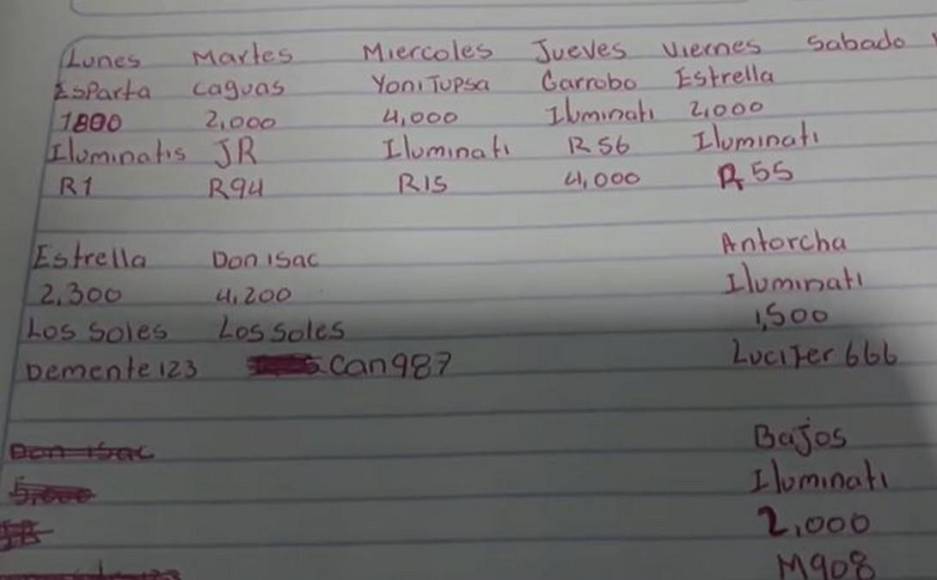 Lunes Martes Miercoles Jueves Viernes Sabado
Esparta Caguas Yoni Tupsa Garrobo Estrella
1800 2,000 4,000 Iluminati 2,000
Iluminatis JR Iluminati R56 Iluminati
R1 R94 R15 4,000 R55
Estrella Don isac Antorcha
2,300 4,200 Iluminati
Los Soles Los Soles 1,500
Demente123 Can987 Lucifer 666
Don isac Bajos
5,000 Iluminati
2,000
M908